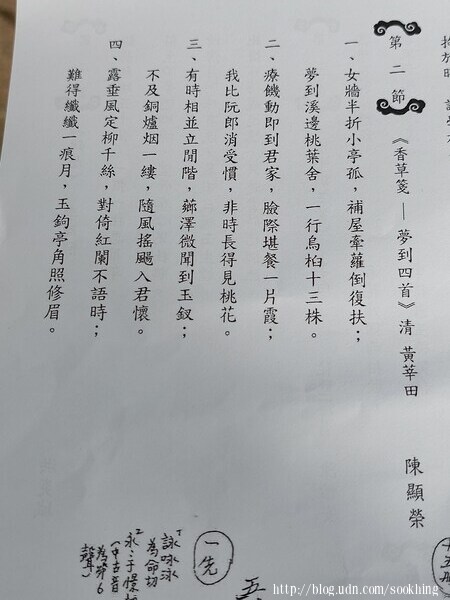 第二節 《香草箋－夢到四首》清 黃莘田 陳顯榮
一、女牆半折小亭孤，補屋牽蘿倒復扶；
夢到溪邊桃葉舍，一行烏桕十三株。
二、療饑動即到君家，臉際堪餐一片霞；
我比阮郎消受慣，非時長得見桃花。
三、有時相並立閒階，薌澤微聞到玉釵；
不及銅爐烟一縷，隨風搖颺入君懷。
四、露垂風定柳千絲，對倚紅闌不語時；
難得纖纖一痕月，玉鉤亭角照修眉。
一先
詠咏泳
為命切
http://blog.udn.com/sookhing